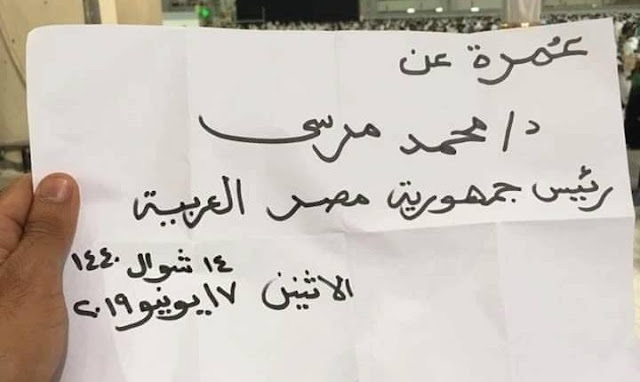 عُمرة عن
د/ محمد مرسى
رئيس جمهورية مصر العربية
١٤ شوال ١٤٤٠
الاثنين ١٧ يونيو ٢٠١٩